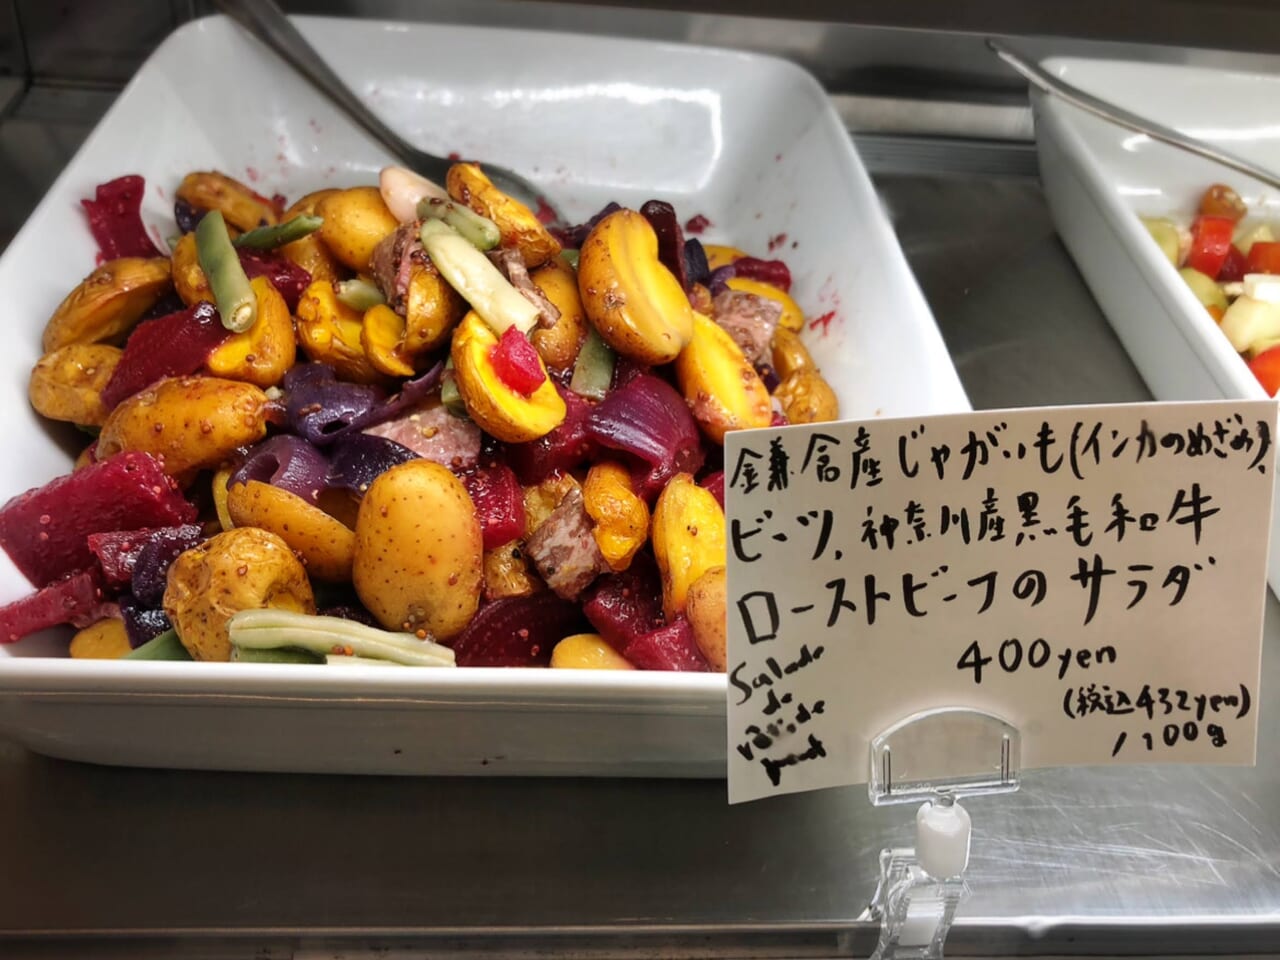 鎌倉産じゃがいも(インカのめざめ)、
ビーツ、神奈川産黒毛和牛
ローストビーフのサラダ
400yen
(税込432yen)
/100g
Salade
de